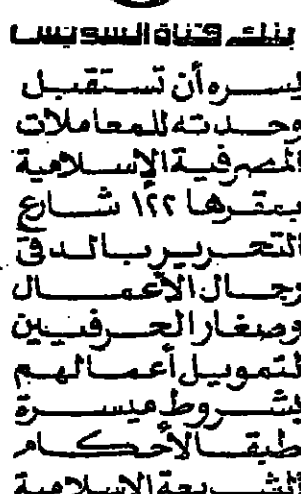 بنك قناة السويس
يسره أن تستقبل
وحدته للمعاملات
المصرفية الإسلامية
بمقرها ١٢٢ شارع
التحرير بالدقى
رجال الأعمال
وصغار الحرفيين
لتمويل أعمالهم
بشروط ميسرة
طبقا لأحكام
الشريعة الإسلامية